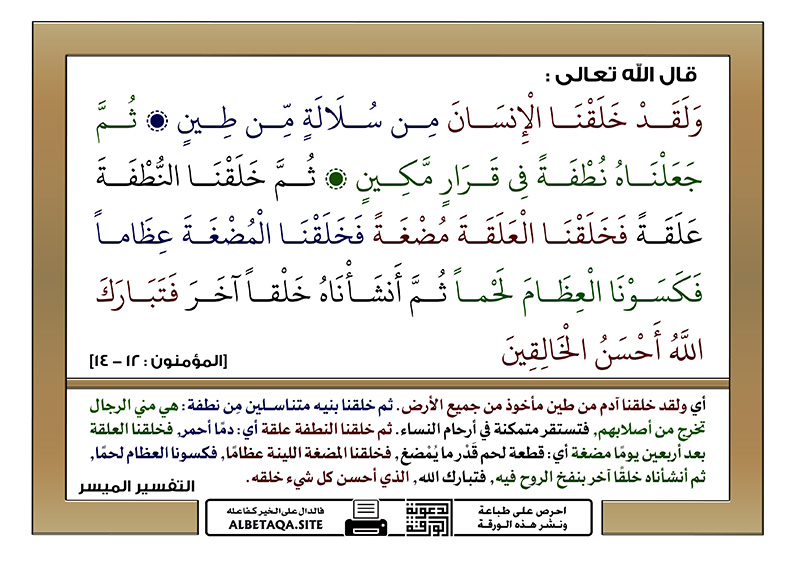 قال الله تعالى :
وَلَقَدْ خَلَقْنَا الْإِنسَانَ مِن سُلَالَةٍ مِّن طِينٍ ۞ ثُمَّ
جَعَلْنَاهُ نُطْفَةً فِي قَرَارٍ مَّكِينٍ ۞ ثُمَّ خَلَقْنَا النُّطْفَةَ
عَلَقَةً فَخَلَقْنَا الْعَلَقَةَ مُضْغَةً فَخَلَقْنَا الْمُضْغَةَ عِظَاماً
فَكَسَوْنَا الْعِظَامَ لَحْماً ثُمَّ أَنشَأْنَاهُ خَلْقاً آخَرَ فَتَبَارَكَ
اللَّهُ أَحْسَنُ الْخَالِقِينَ
[المؤمنون : ١٢ – ١٤]
أي ولقد خلقنا آدم من طين مأخوذ من جميع الأرض. ثم خلقنا بنيه متناسلين مِن نطفة : هي مني الرجال
تخرج من أصلابهم, فتستقر متمكنة في أرحام النساء. ثم خلقنا النطفة علقة أي : دمًا أحمر, فخلقنا العلقة
بعد أربعين يومًا مضغة أي : قطعة لحم قَدْر ما يُمْضغ, فخلقنا المضغة اللينة عظامًا, فكسونا العظام لحمًا,
ثم أنشأناه خلقًا آخر بنفخ الروح فيه, فتبارك الله, الذي أحسن كل شيء خلقه.
التفسير الميسر
احرص على طباعة
ونشر هذه الورقة
الدعوية
الورقة
فالدال على الخير كفاعله
ALBETAQA.SITE